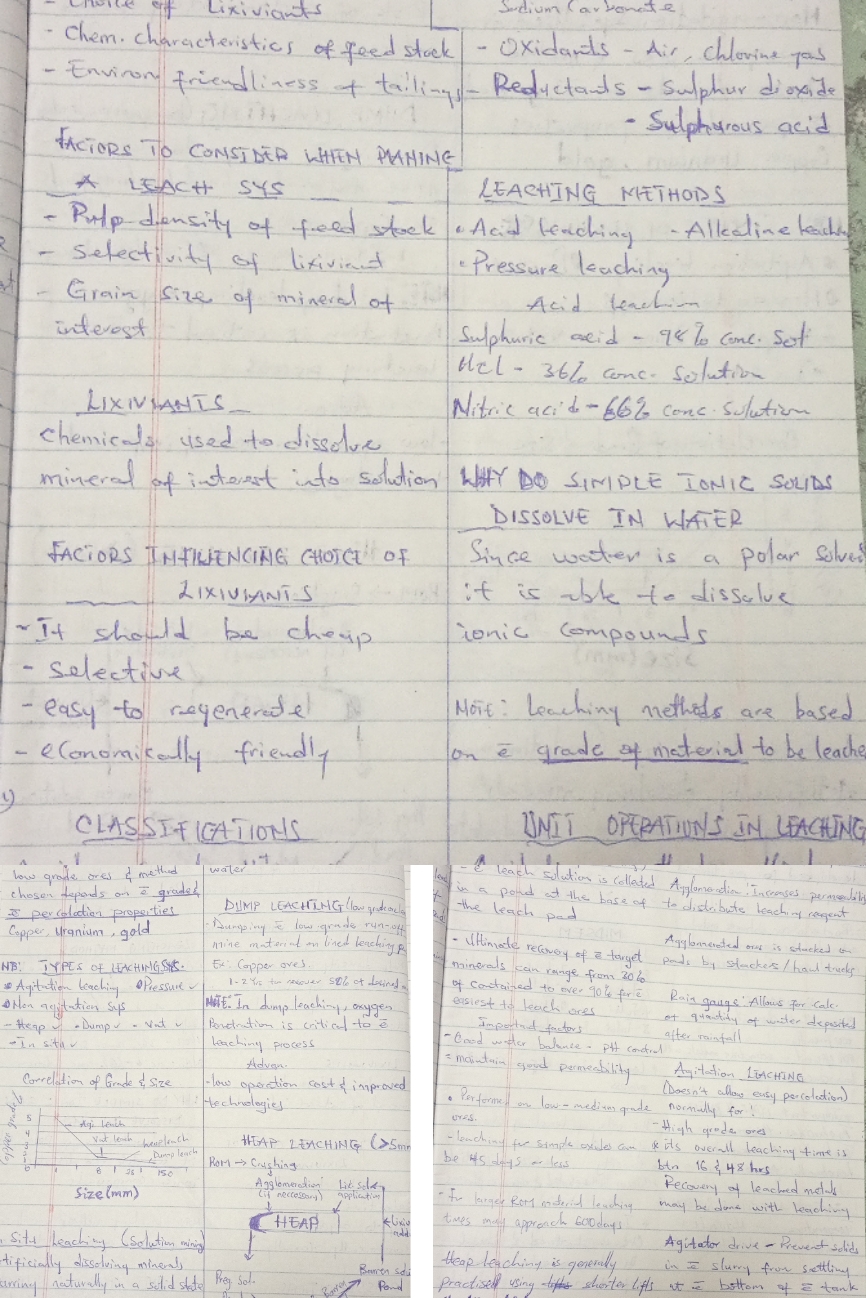 - Choice of Lixiviants
- Chem. characteristics of feed stock
- Environ friendliness of tailings
FACTORS TO CONSIDER WHEN PLANING
A LEACH SYS
- Pulp density of feed stock
- Selectivity of lixiviant
- Grain size of mineral of
interest
LIXIVIANTS
Chemicals used to dissolve
mineral of interest into solution
FACTORS INFLUENCING CHOICE OF
LIXIVIANTS
- It should be cheap
- selective
- easy to regenerate
- economically friendly
CLASSIFICATIONS
Sodium Carbonate
- Oxidants - Air, Chlorine gas
- Reductants - Sulphur dioxide
- Sulphurous acid
LEACHING METHODS
• Acid leaching - Alkaline leachi
• Pressure leaching
Acid leachin
Sulphuric acid - 98% conc. Sol
HCl - 36% conc. Solution
Nitric acid - 66% conc. solution
WHY DO SIMPLE IONIC SOLIDS
DISSOLVE IN WATER
Since water is a polar solve
it is able to dissolve
ionic compounds
NOTE: Leaching methods are based
on ē grade of material to be leache
UNIT OPERATIONS IN LEACHING
low grade ores & method
chosen depends on ē grade &
ē percolation properties
Copper, uranium, gold
NB: TYPES OF LEACHING SYS.
• Agitation leaching • Pressure ✓
• Non agitation sys
- Heap ✓ • Dump ✓ - Vat ✓
- In situ ✓
Correlation of Grade & Size
Agi. Leach
Vat leach
heap leach
Dump leach
8 25 150
Size (mm)
Situ Leaching (Solution mining
tificially dissolving minerals
urring naturally in a solid state
water
DUMP LEACHING (low grade
- Dumping ē low grade run-off
mine material on lined leaching p
Ex: Copper ores
1-2 yrs to recover 50% of desired
NOTE: In dump leaching, oxygen
Penetration is critical to ē
leaching process
Advan.
- low operation cost & improved
technologies
HEAP LEACHING (>5mm
ROM → Crushing
Agglomeration
(if neccessary)
application
HEAP
Preg Sol.
Barren
Barren sol
Pond
- ē leach solution is collected
in a pond at the base of
the leach pad
- Ultimate recovery of ē target
minerals can range from 30%
of contained to over 90% for ē
easiest to leach ores
Important factors
- Good water balance - pH control
- maintain good permeability
• Performed on low-medium grade
ores.
- leaching for simple oxides can
be 45 days or less
- For larger ROM material leaching
times may approach 600 days
Heap leaching is generally
practised using shorter lifts
Agglomeration: Increases permeability
to distribute leaching regent
Agglomerated ores is stacked on
pads by stackers/haul trucks
Rain gauge: Allows for calc.
of quantity of water deposited
after rainfall
Agitation LEACHING
(Doesn't allow easy percolation)
normally for:
- High grade ores
• its overall leaching time is
btn 16 & 48 hrs
Recovery of leached metals
may be done with leaching
Agitator drive - Prevent solids
in ē slurry from settling
at ē bottom of ē tank